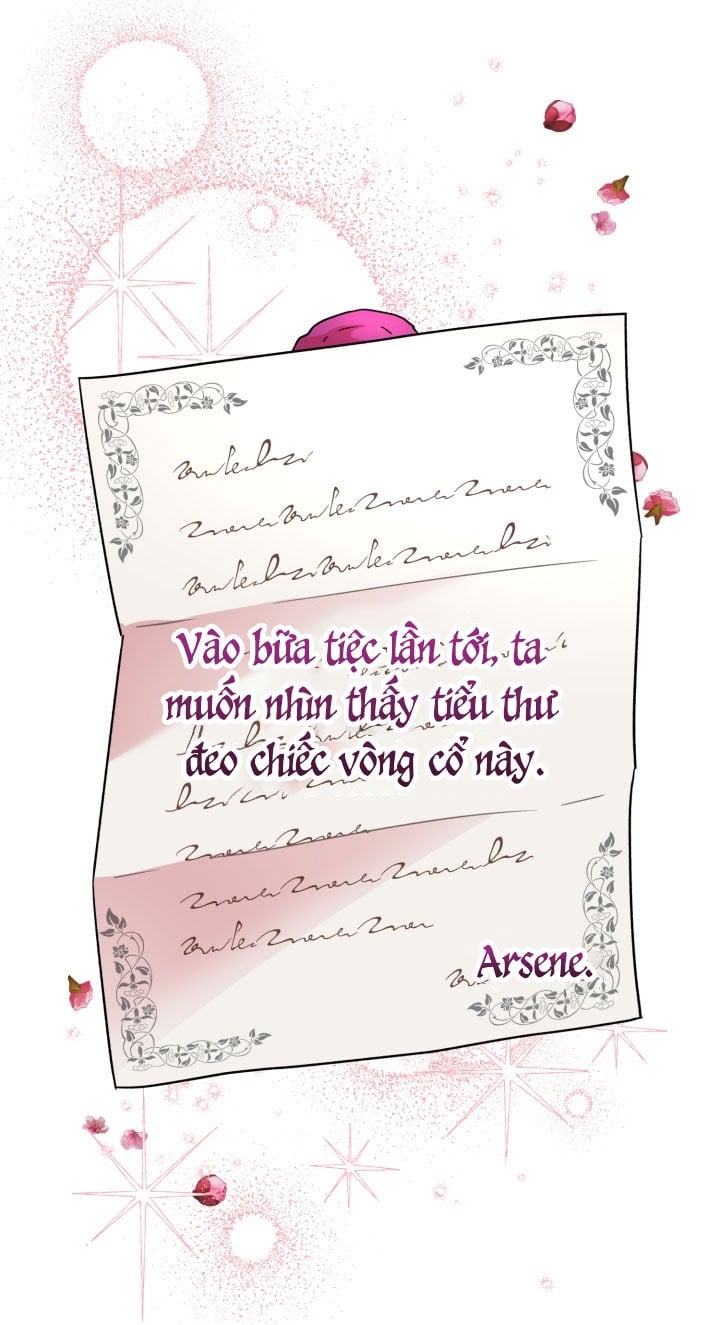 Vào bữa tiệc lần tới, ta
muốn nhìn thấy tiểu thư
đeo chiếc vòng cổ này.
Arsene.